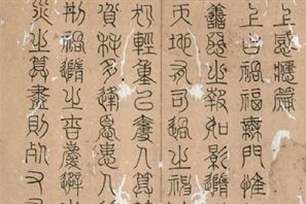 上感應篇
上曰禍福無門惟
善惡之報如影隨
天地有司過之神
犯輕重以奪人算
貧耗多逢憂患人
刑禍隨之吉慶避之
災之算盡則死又有